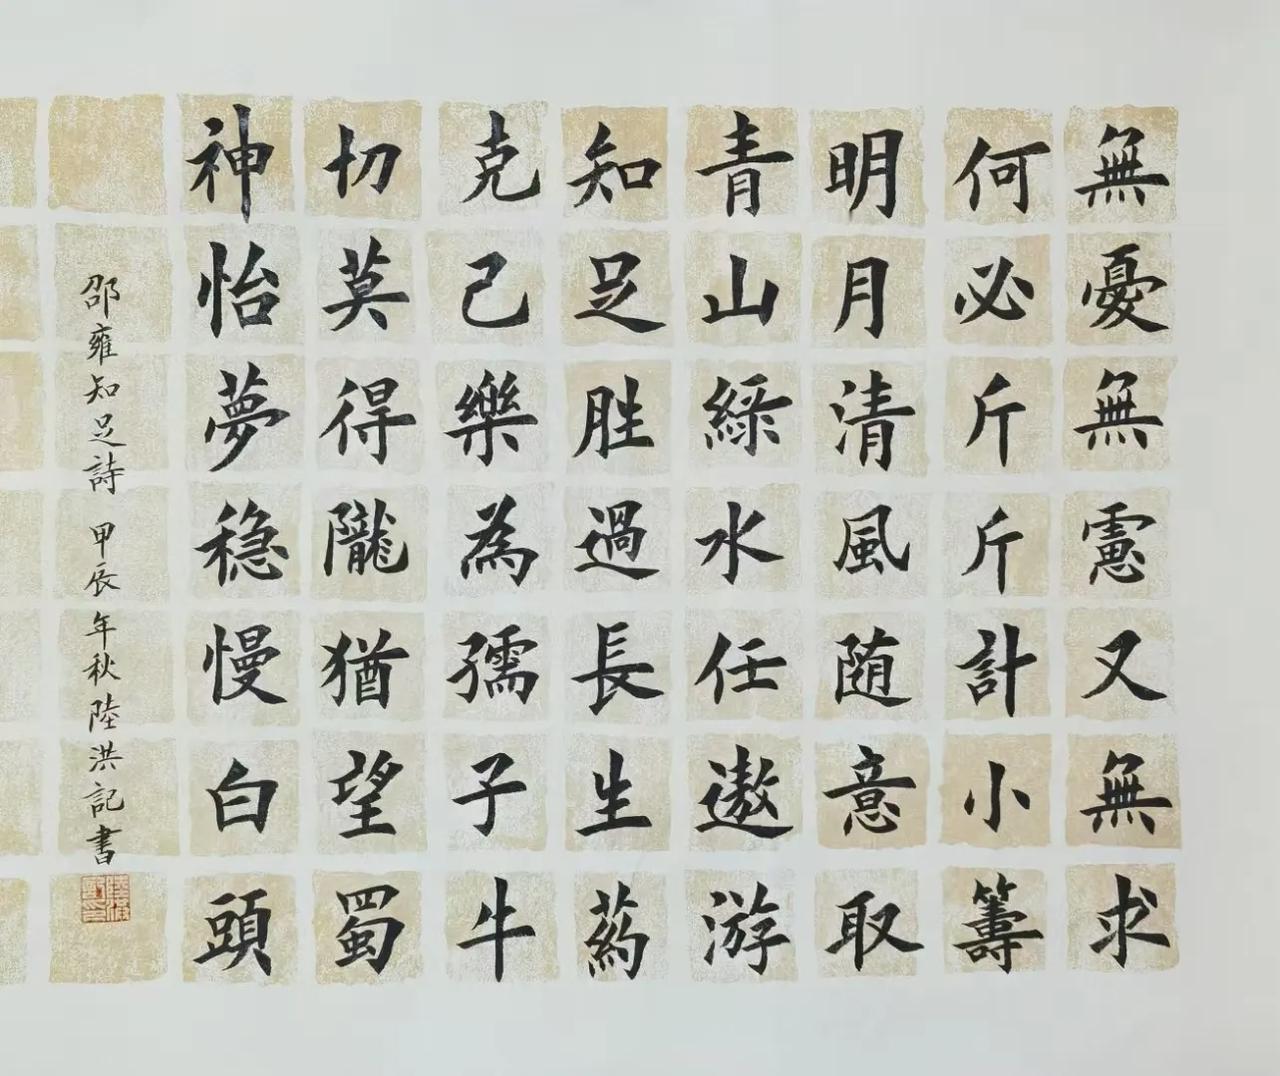 無憂無慮又無求
何必斤斤計小籌
明月清風随意取
青山綠水任遨游
知足胜過長生药
克己樂為孺子牛
切莫得隴猶望蜀
神怡夢稳慢白頭
邵雍知足詩 甲辰年秋陸洪記書